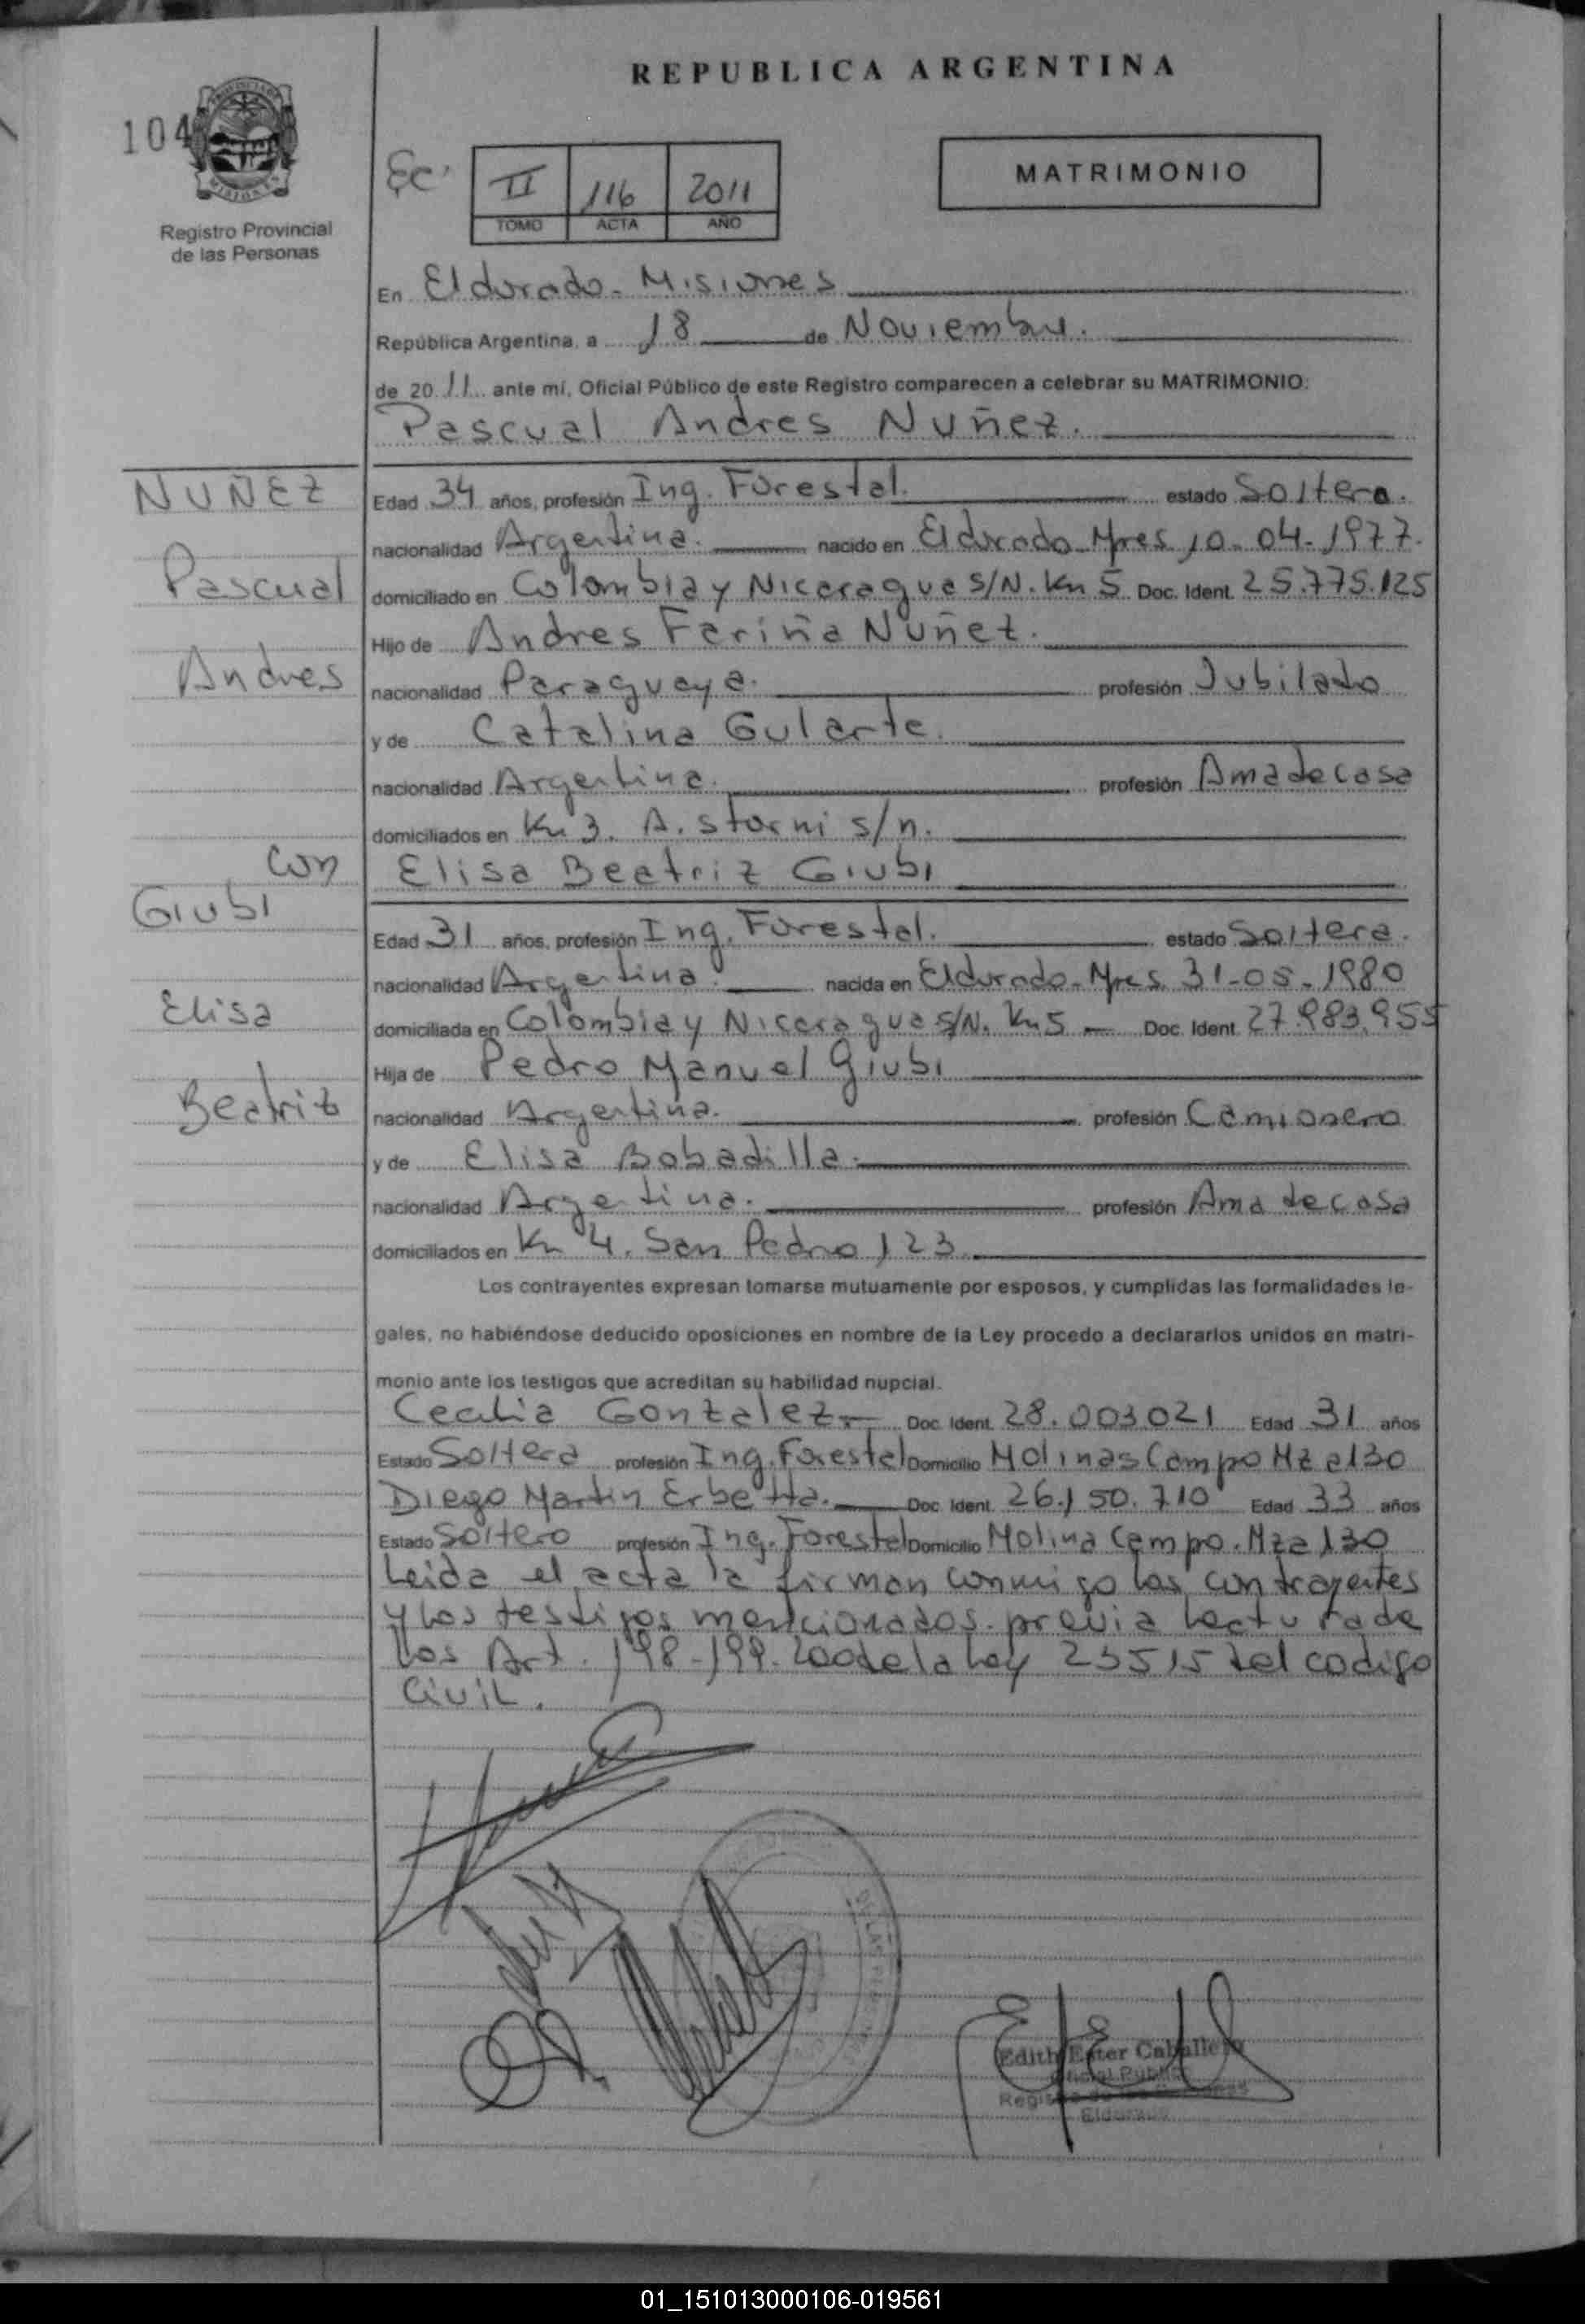 REPUBLICA ARGENTINA
104
PROVINCIA DE
MISIONES
Registro Provincial
de las Personas
Ec.
II 116 2011
TOMO ACTA AÑO
MATRIMONIO
En Eldorado - Misiones
República Argentina, a 18 de Noviembre.
de 2011 ante mí, Oficial Público de este Registro comparecen a celebrar su MATRIMONIO:
Pascual Andres Nuñez.
NUÑEZ
Pascual
Andres
Con
Giubi
Elisa
Beatriz
Edad 34 años, profesión Ing. Forestal. estado Soltero.
nacionalidad Argentina. nacido en Eldorado-Mnes 10-04-1977.
domiciliado en Colombia y Nicaragua S/N. Km 5 Doc. Ident. 25.775.125
Hijo de Andres Fariña Nuñez.
nacionalidad Paraguaya. profesión Jubilado
y de Catalina Gularte.
nacionalidad Argentina. profesión Ama de casa
domiciliados en Km 3. A. Storni s/n.
Elisa Beatriz Giubi
Edad 31 años, profesión Ing. Forestal. estado Soltera.
nacionalidad Argentina nacida en Eldorado-Mnes 31-05-1980
domiciliada en Colombia y Nicaragua S/N. Km 5 Doc. Ident. 27.983.955
Hija de Pedro Manuel Giubi
nacionalidad Argentina. profesión Camionero
y de Elisa Bobadilla.
nacionalidad Argentina. profesión Ama de casa
domiciliados en Km 4. San Pedro 123.
Los contrayentes expresan tomarse mutuamente por esposos, y cumplidas las formalidades le-
gales, no habiéndose deducido oposiciones en nombre de la Ley procedo a declararlos unidos en matri-
monio ante los testigos que acreditan su habilidad nupcial.
Cecilia Gonzalez Doc. Ident. 28.003.021 Edad 31 años
Estado Soltera profesión Ing. Forestal Domicilio Molinas Campo Mza 130
Diego Martin Erbetta. Doc. Ident. 26.150.710 Edad 33 años
Estado Soltero profesión Ing. Forestal Domicilio Molina Campo. Mza 130
Leida el acta la firman conmigo los contrayentes
y los testigos mencionados. previa lectura de
los Art. 198-199-200 de la Ley 23515 del codigo
Civil.
DE LAS
Edith Ester Caballero
Oficial Público
Eldorado
01_151013000106-019561